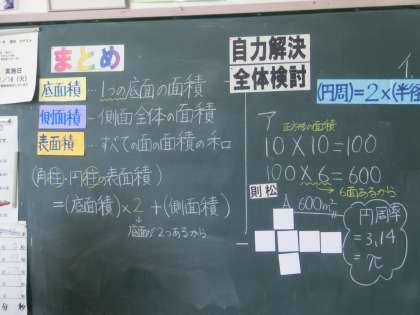 実施日
まとめ
底面積…1つの底面の面積
側面積…側面全体の面積
表面積…すべての面の面積の和
(角柱・円柱の表面積)
=(底面積)×2+(側面積)
底面が2つあるから
自力解決
全体検討
イ
(円周)=2×(半径
ア
正方形の面積
10×10=100
100×6=600
6面あるから
則松
A 600m²
円周率
=3,14
=π